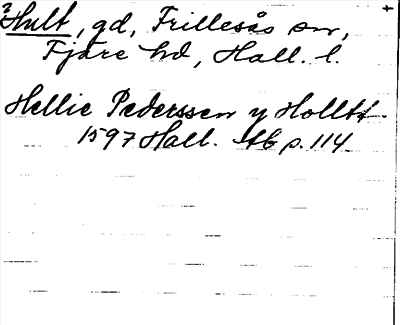 ? Hult, gd, Frillesås sn,
Fjäre hd, Hall. l.
Hellie Pederssen y Holltt.
1597 Hall. Ab p. 114